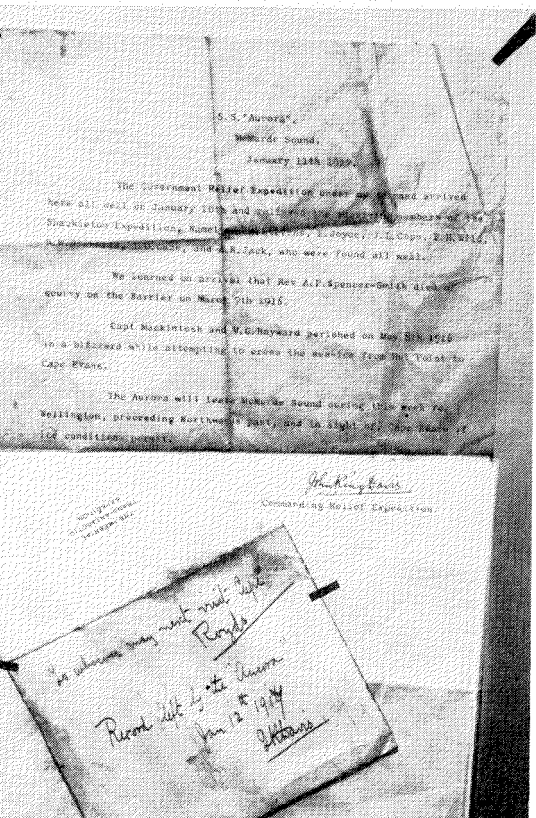 S.S."Aurora".
McMurdo Sound.
January 11th
The Government Relief Expedition under my command arrived
here all well on January 10th and the members of the
Shackleton Expedition, Namely Joyce, J.L.Cope, E.R.Wild,
and A.K.Jack, who were found all well.
We learned on arrival that Rev A.P.Spencer-Smith died of
scurvy on the Barrier on March 9th 1916.
Capt Mackintosh and V.G.Hayward perished on May 8th 1916
in a blizzard while attempting to cross the sea-ice from Hut Point to
Cape Evans.
The Aurora will leave McMurdo Sound during this week
Wellington, proceeding Northwards past, and in sight of, Cape if
ice conditions permit.
John King Davis
Commanding Relief Expedition
To whoever may next visit Cape
Royds
Record left by the "Aurora
Jan 12th
JKDavis